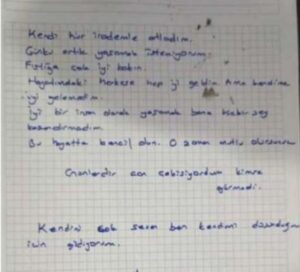 Kendi hür irademle atladım.
Çünkü artık yaşamak istemiyorum.
Fıstığa çok iyi bakın.
Hayatımdaki herkese hep iyi geldim. Ama kendime
iyi gelemedim.
İyi bir insan olarak yaşamak bana hiçbir şey
kazandırmadım.
Bu hayatta bencil olun. O zaman mutlu olursunuz
can çekişiyordum kimse
görmedi.
Kendini çok seven ben kendimi
için gidiyorum.